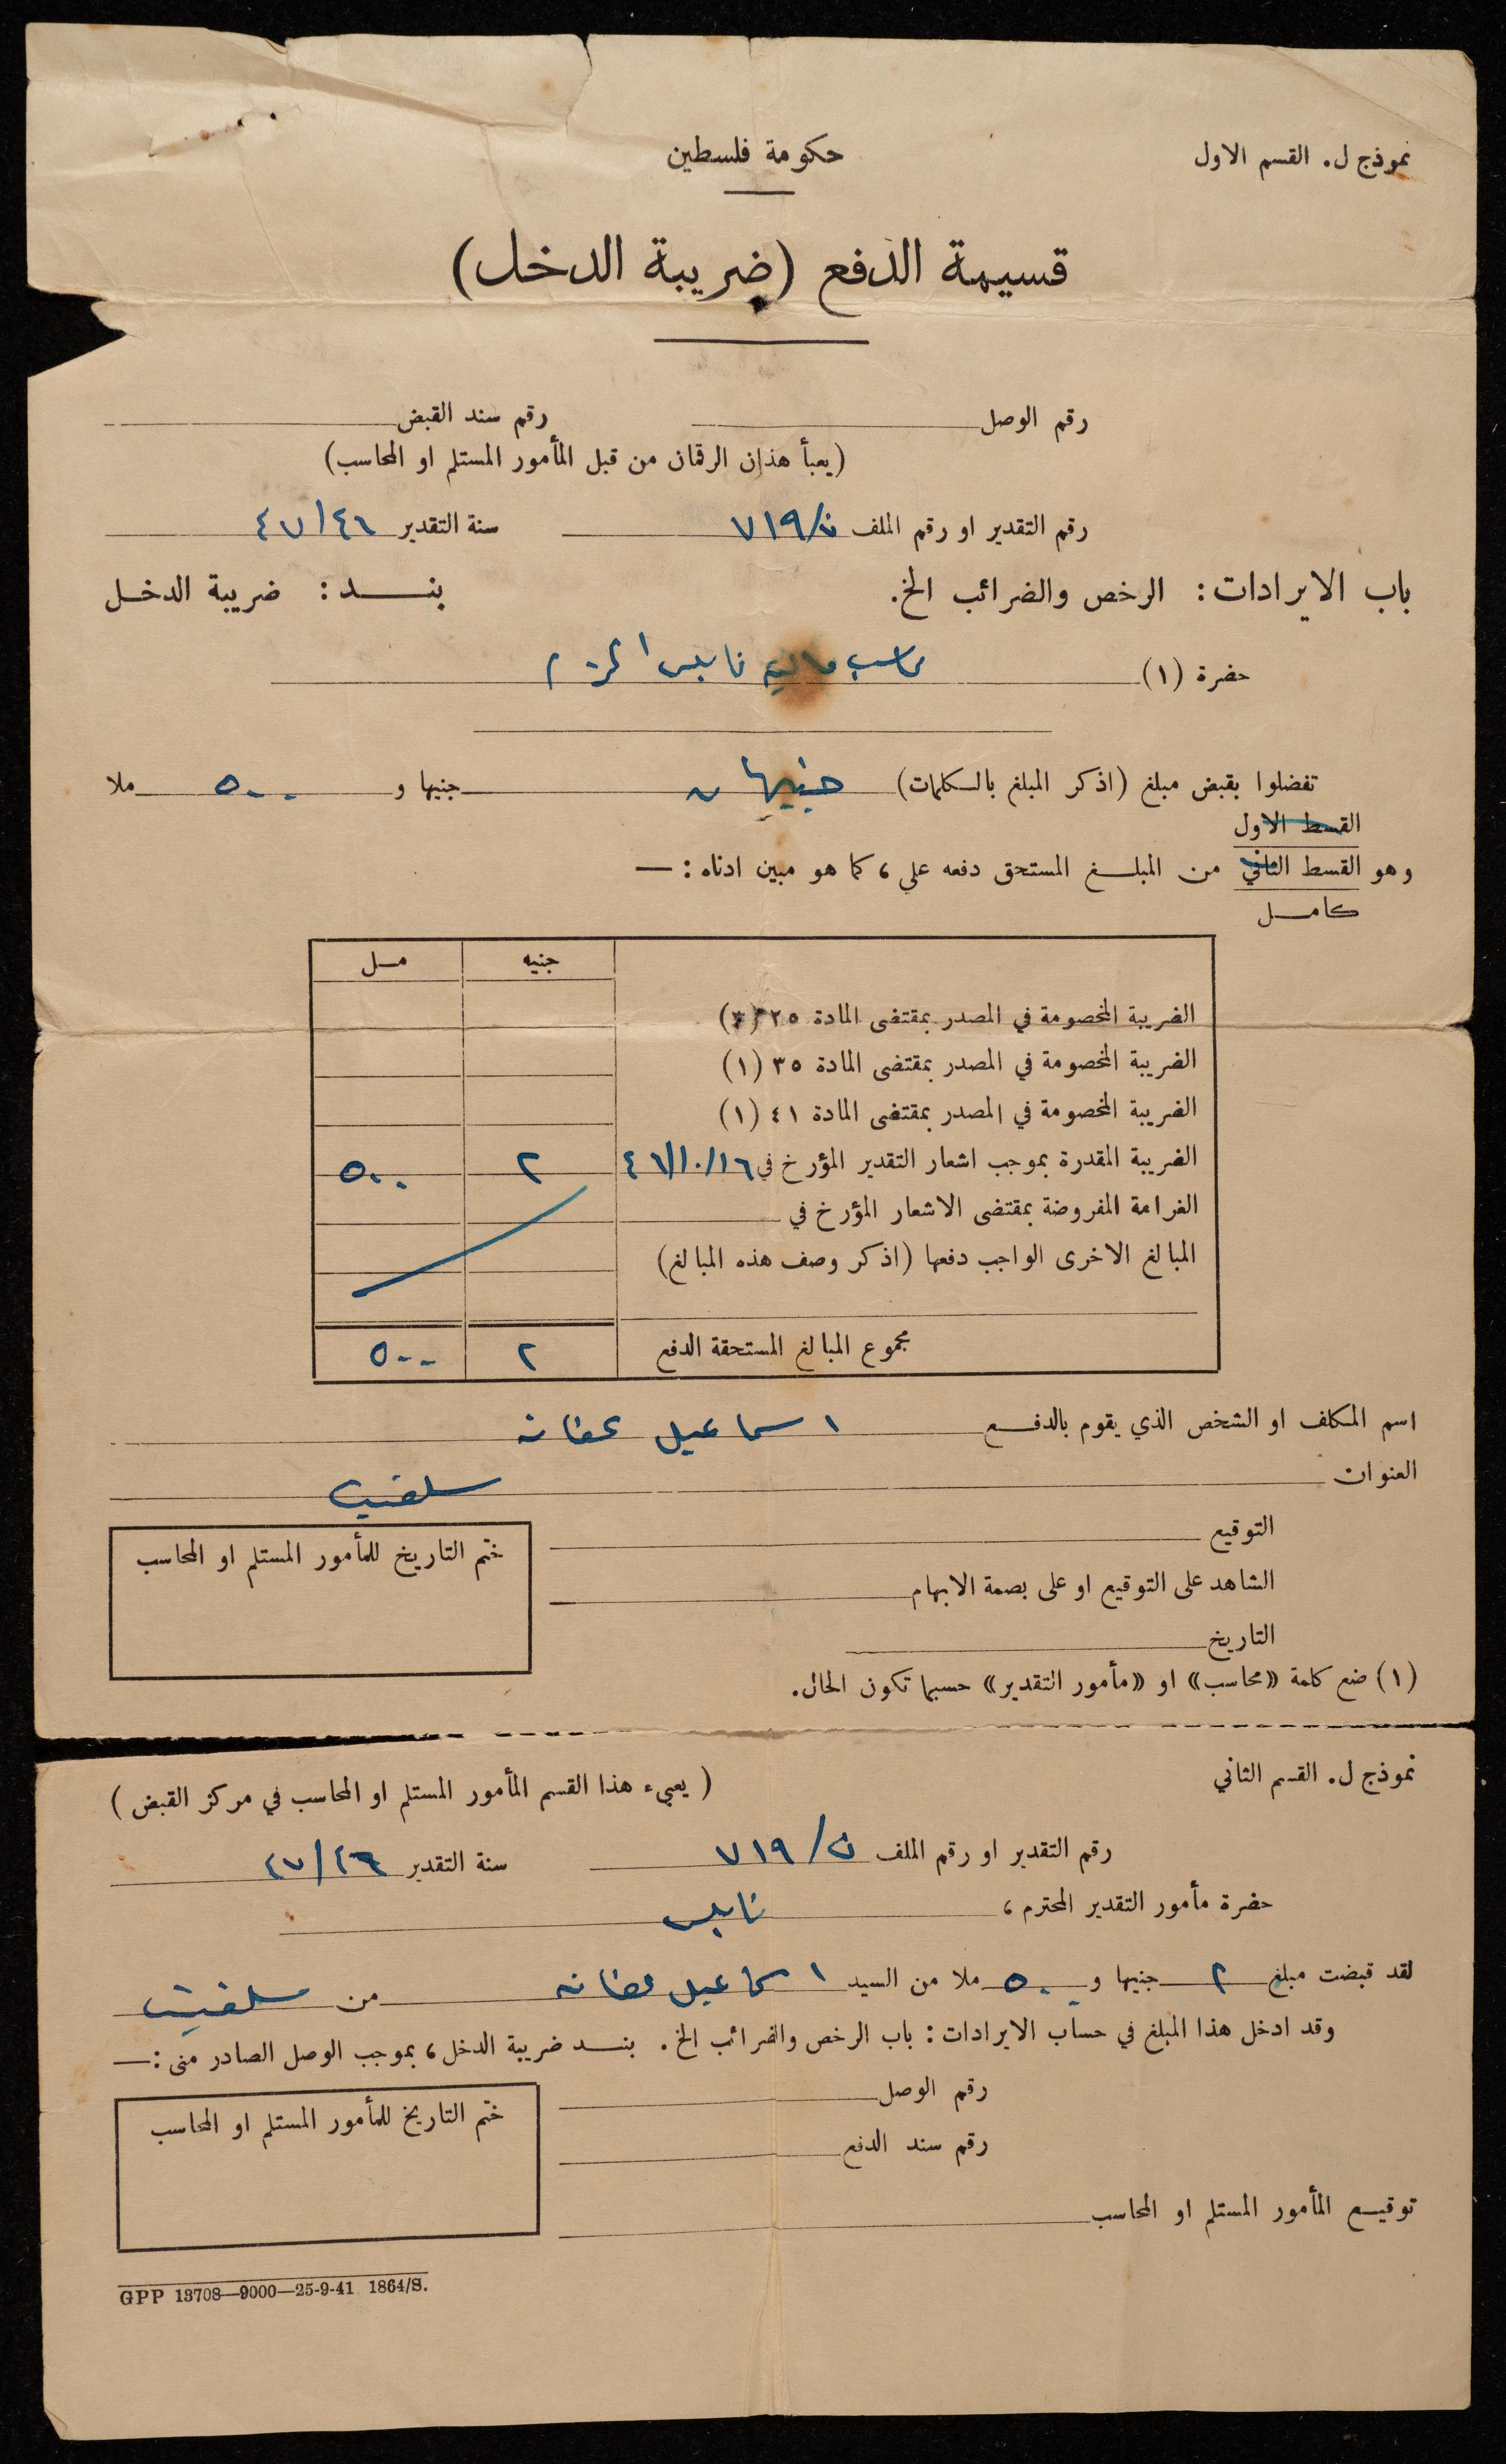 نموذج ل. القسم الاول
حكومة فلسطين
قسيمة الدفع (ضريبة الدخل)
رقم الوصل رقم سند القبض
(يعبأ هذان الرقمان من قبل المأمور المستلم او المحاسب)
رقم التقدير او رقم الملف ن/٧١٩ سنة التقدير ٤٧/٤٦
باب الايرادات: الرخص والضرائب الخ. بنـــد: ضريبة الدخل
حضرة (١) محاسب مالية نابلس
تفضلوا بقبض مبلغ (اذكر المبلغ بالكلمات) جنيهان جنيها و ٥٠٠ ملا
القسط الاول
وهو القسط الثاني من المبلـــغ المستحق دفعه علي، كما هو مبين ادناه: —
كامـــل
جنيه مـــل
الضريبة المخصومة في المصدر بمقتضى المادة ٢٥ (٣)
الضريبة المخصومة في المصدر بمقتضى المادة ٣٥ (١)
الضريبة المخصومة في المصدر بمقتضى المادة ٤١ (١)
الضريبة المقدرة بموجب اشعار التقدير المؤرخ في ٤٦/١٠/١٦ ٢ ٥٠٠
الغرامة المفروضة بمقتضى الاشعار المؤرخ في
المبالغ الاخرى الواجب دفعها (اذكر وصف هذه المبالغ)
مجموع المبالغ المستحقة الدفع ٢ ٥٠٠
اسم المكلف او الشخص الذي يقوم بالدفـــع اسماعيل عفانه
العنوان سلفيت
التوقيع
ختم التاريخ للمأمور المستلم او المحاسب
الشاهد على التوقيع او على بصمة الابهام
التاريخ
(١) ضع كلمة «محاسب» او «مأمور التقدير» حسبما تكون الحال.
نموذج ل. القسم الثاني
(يعبيء هذا القسم المأمور المستلم او المحاسب في مركز القبض)
رقم التقدير او رقم الملف ن/٧١٩ سنة التقدير ٤٧/٤٦
حضرة مأمور التقدير المحترم، نابلس
لقد قبضت مبلغ ٢ جنيها و ٥٠٠ ملا من السيد اسماعيل عفانه من سلفيت
وقد ادخل هذا المبلغ في حساب الايرادات: باب الرخص والضرائب الخ. بنـــد ضريبة الدخل، بموجب الوصل الصادر منى: —
رقم الوصل
ختم التاريخ للمأمور المستلم او المحاسب
رقم سند الدفع
توقيـــع المأمور المستلم او المحاسب
GPP 13708—9000—25-9-41 1864/S.